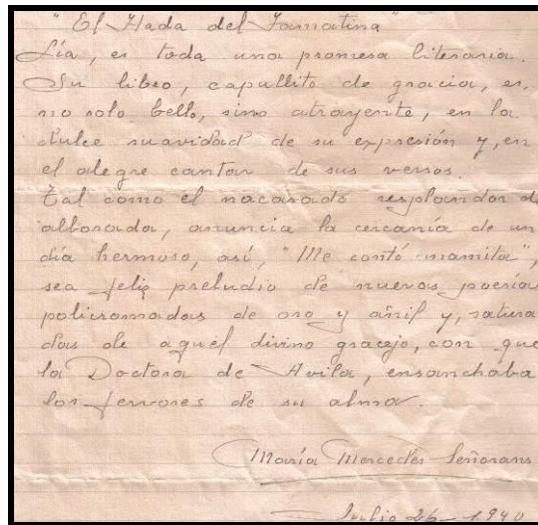 "El Hada del Famatina"
Lía, es toda una promesa literaria.
Su libro, capullito de gracia, es,
no solo bello, sino atrayente, en la
dulce suavidad de su expresión y, en
el alegre cantar de sus versos.
Tal como el nacarado resplandor de
alborada, anuncia la cercanía de un
día hermoso, así, "Me contó mamita",
sea feliz preludio de nuevas poesías
policromadas de oro y añil y, satura
das de aquel divino gracejo, con que
la Doctora de Avila, ensanchaba
los fervores de su alma.
María Mercedes Señorans
Julio 26-1940